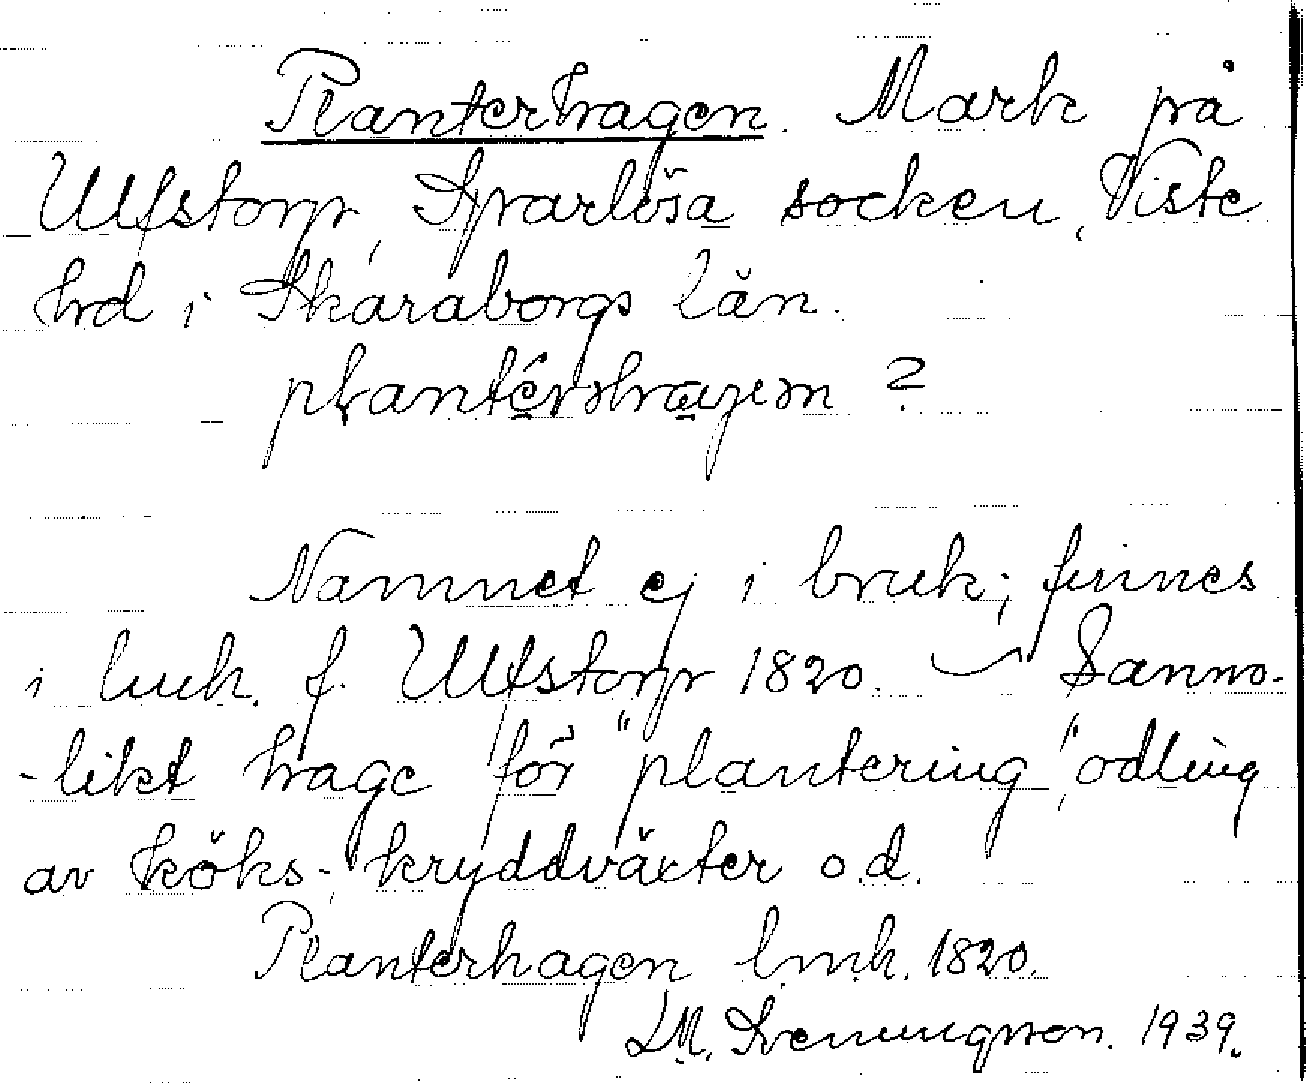 Planterhagen. Mark på
Ulfstorp, Sparlösa socken, Viste
hrd i Skaraborgs län.
?
Namnet ej i bruk; finnes
i lmk. f. Ulfstorp 1820. — Sanno-
-likt hage för "plantering", odling
av köks-, kryddväxter o.d.
Planterhagen lmk. 1820.
LM. Svenungsson. 1939.